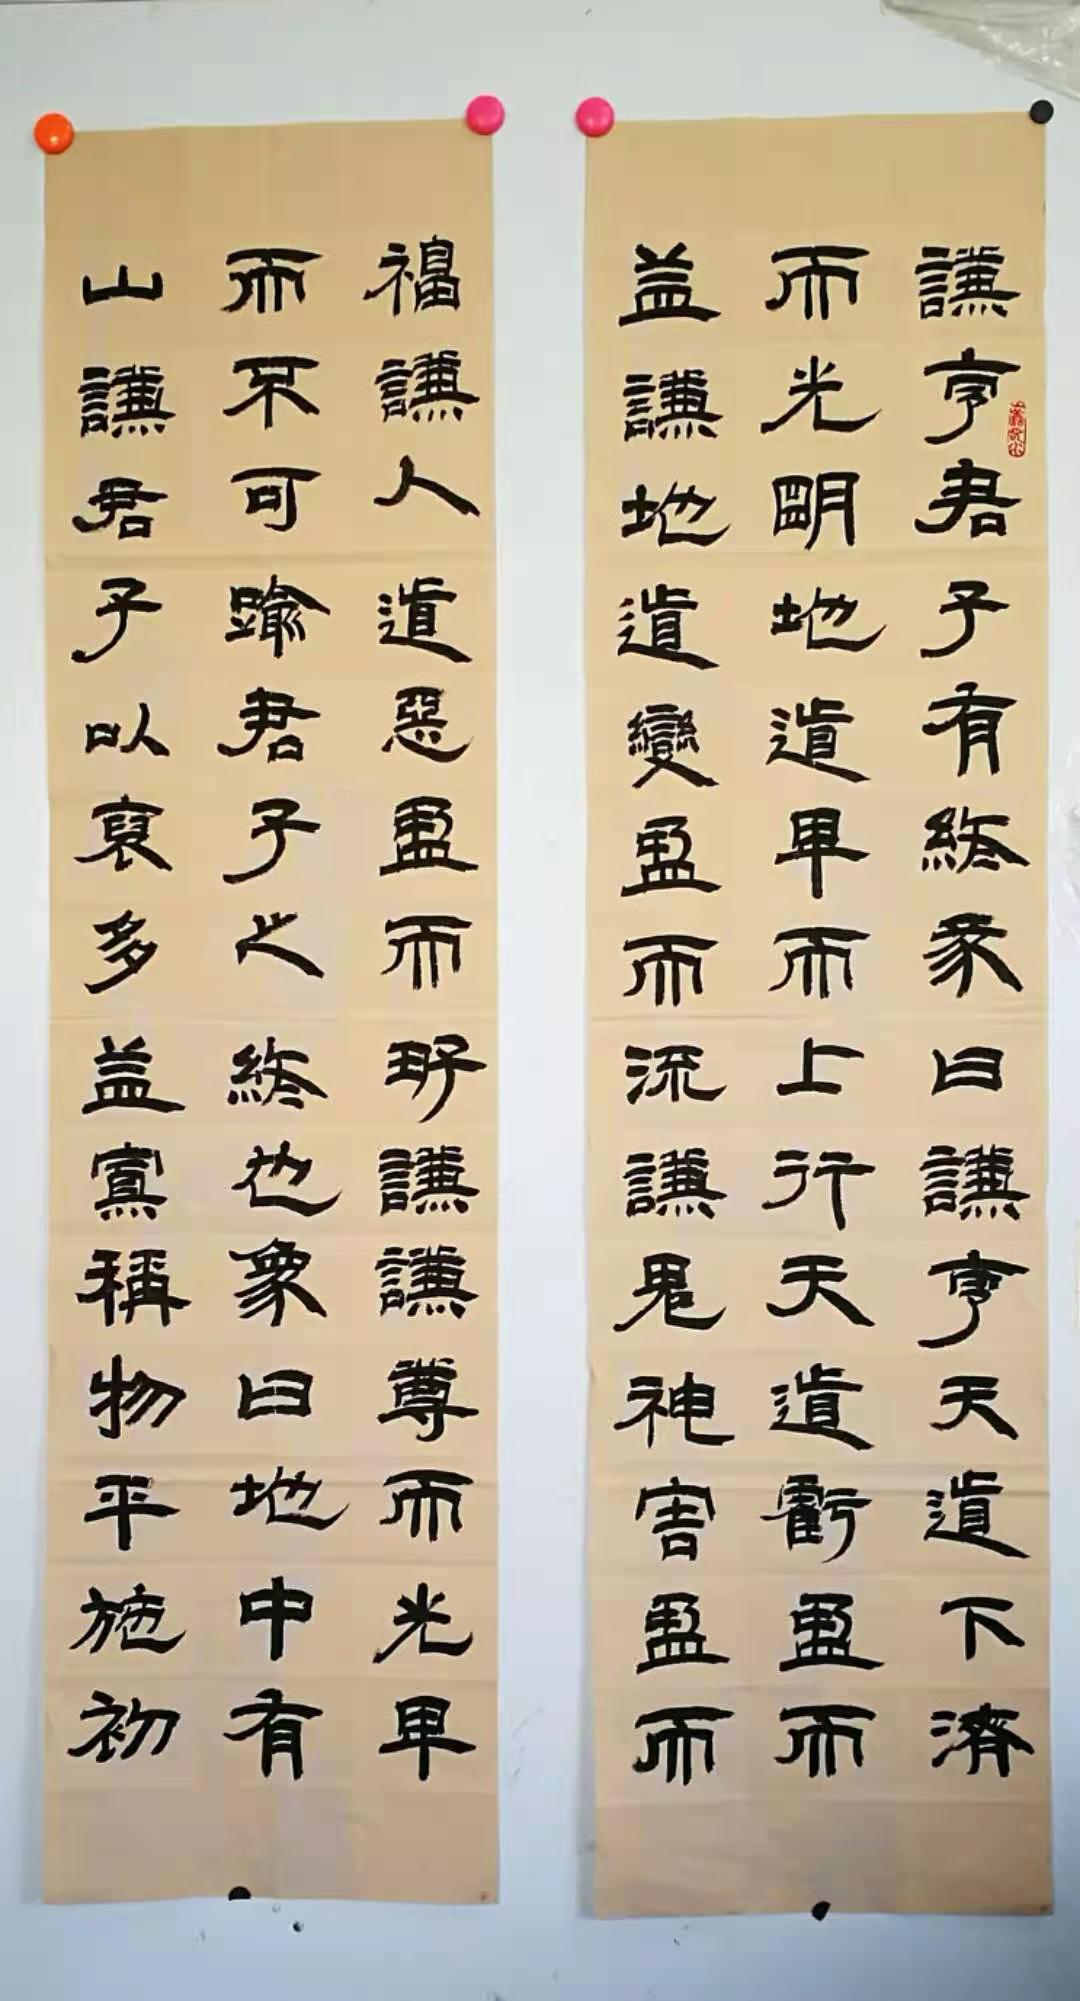 謙亨君子有終彖曰謙亨天道下濟
而光明地道卑而上行天道虧盈而
益謙地道變盈而流謙鬼神害盈而
福謙人道惡盈而好謙謙尊而光卑
而不可踰君子之終也象曰地中有
山謙君子以裒多益寡稱物平施初